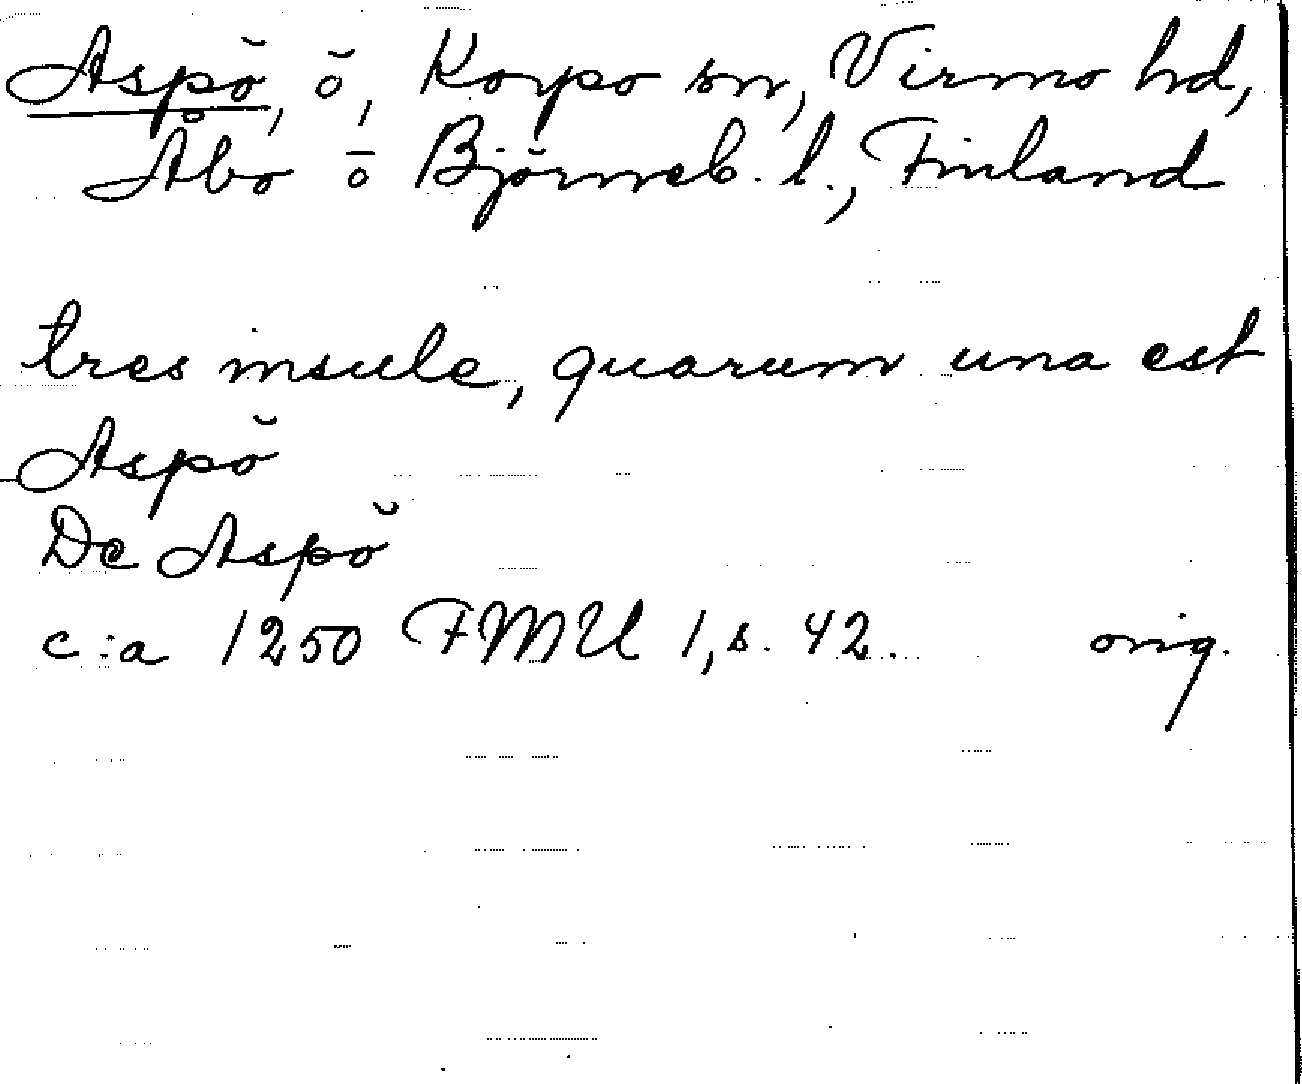 Aspö, ö, Korpo sn, Virmo hd,
Åbo o Björneb. l., Finland
tres insule, quarum una est
Aspö
De Aspö
c:a 1250 FMU 1, s. 42. orig.